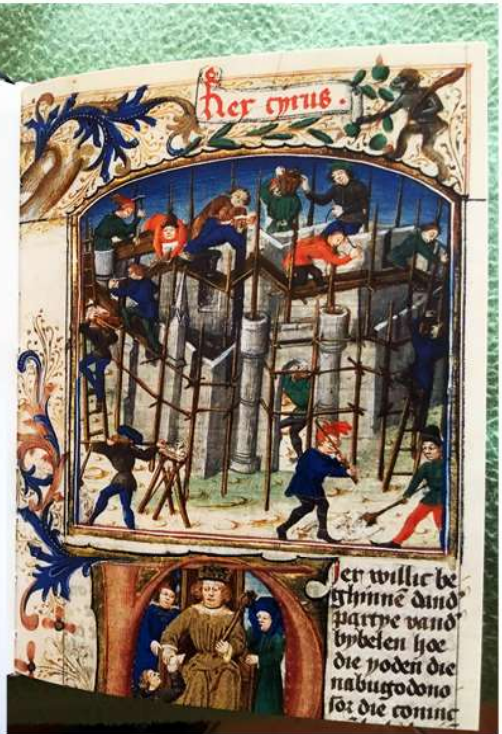 Rex cyrus.
Hier willic be
ghynnē dand'
partye vand'
bybelen hoe
die yoden die
nabugodono
sor die coninc